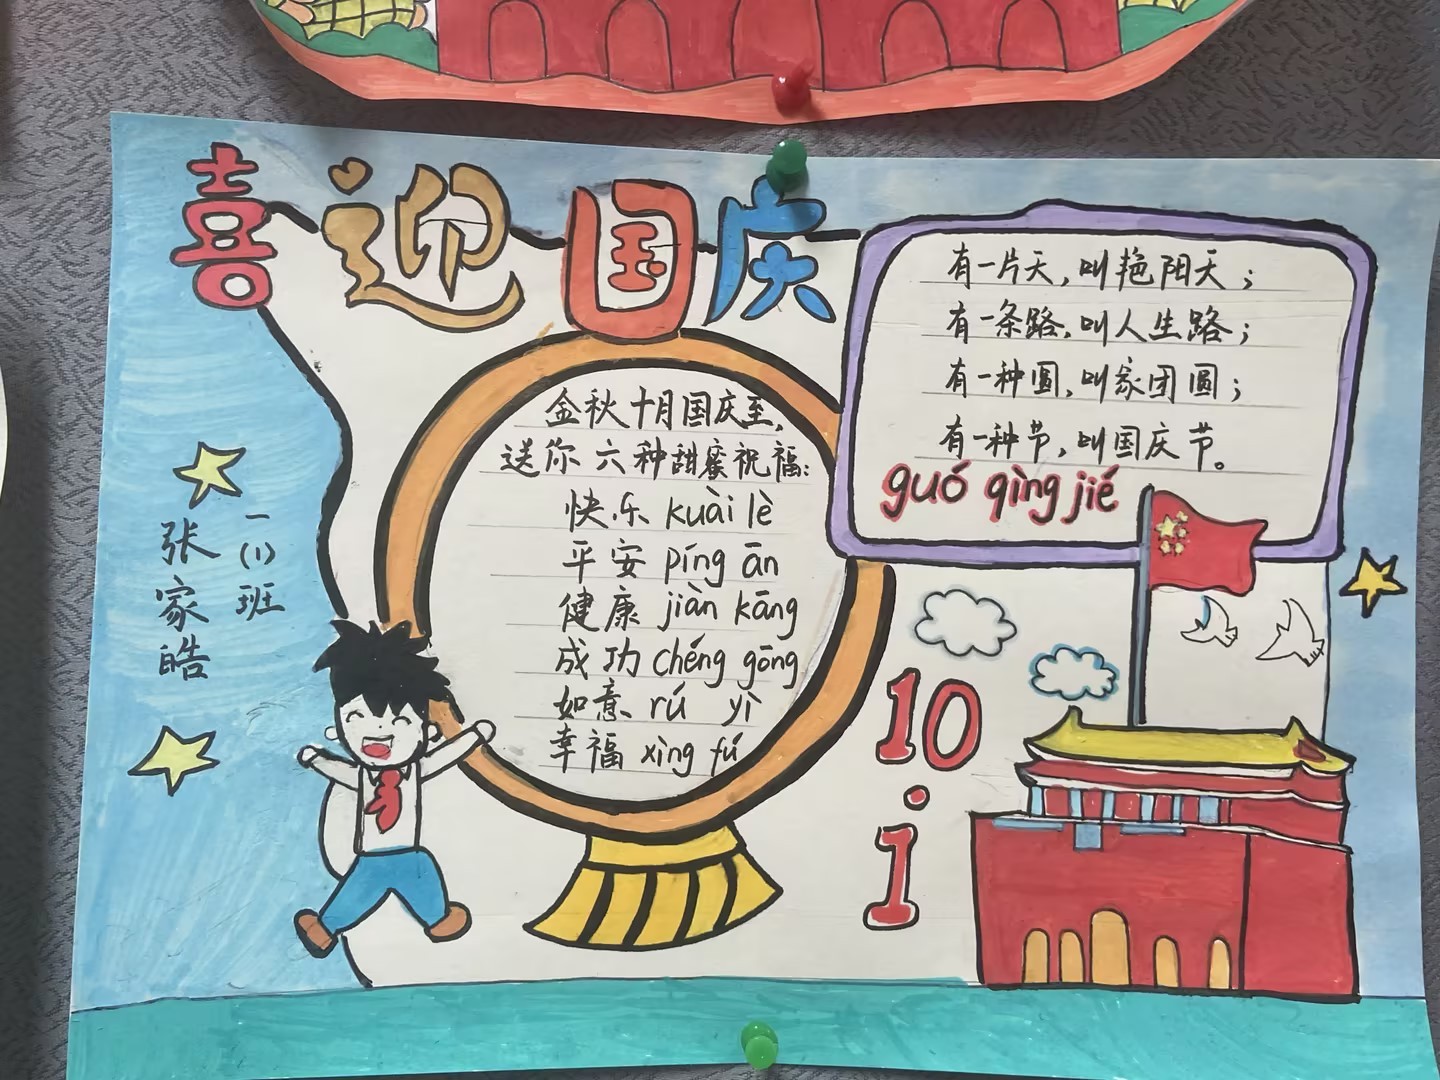 喜迎国庆
有一片天，叫艳阳天；
有一条路，叫人生路；
有一种圆，叫家团圆；
有一种节，叫国庆节。
guó qìng jié
金秋十月国庆至，
送你六种甜蜜祝福：
快乐 kuài lè
平安 píng ān
健康 jiàn kāng
成功 chéng gōng
如意 rú yì
幸福 xìng fú
一(1)班
张家皓
10.1